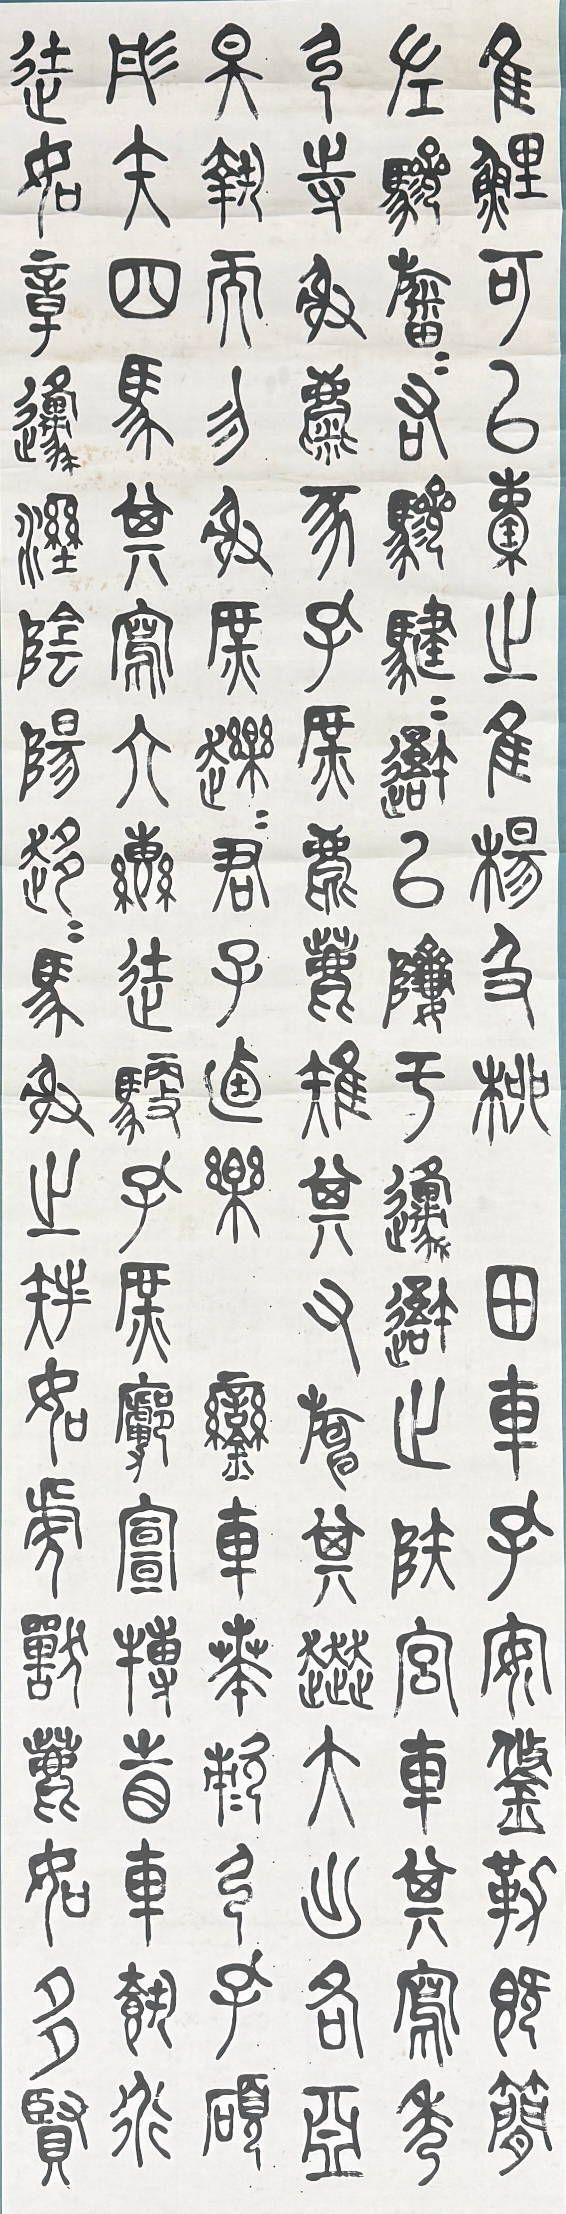 隹鯉可㠯橐之隹楊及柳 田車孔安鋚勒既簡
左驂旛=右驂騝=𨘌㠯隮于邍𨘌止陕宮車其寫秀
弓寺射麋豕孔庶麀鹿雉其又旃其大出各亞
昊執而勿射庶趯=君子逌樂 鑾車𠦪敕弓孔碩
彤矢四馬其寫六轡徒馭孔庶廓宣搏眚車行
徒如章邍濕陰陽趍=馬射之如虎獸鹿如多賢